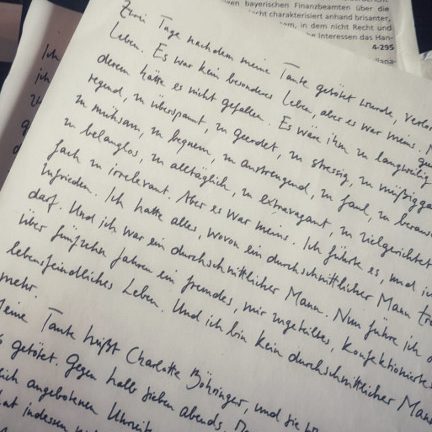 bayerischen Finanzbeamten über die
charakterisiert anhand brisanter,
in dem nicht Recht und
Interessen das Han-
4-295
Zwei Tage nachdem meine Tante getötet wurde, verlor
Leben. Es war kein besonderes Leben, aber es war meins.
derem hätte es nicht gefallen. Es wäre ihm zu langweilig
regend, zu überspannt, zu geerdet, zu stressig, zu müßiggä
zu mühsam, zu bequem, zu anstrengend, zu faul, zu berausc
zu belanglos, zu alltäglich, zu extravagant, zu zielgerichtet
fach zu irrelevant. Aber es war meins. Ich führte es, und
zufrieden. Ich hatte alles, wovon ein durchschnittlicher Mann
darf. Und ich war ein durchschnittlicher Mann. Nun führe ich
über fünfzehn Jahren ein fremdes, mir zugeteiltes, konfektionierte
lebensfeindliches Leben. Und ich bin kein durchschnittlicher Mann
mehr.
Meine Tante heißt Charlotte Böhringer, und sie
getötet. Gegen halb sieben abends.
angebotenen
hat indessen